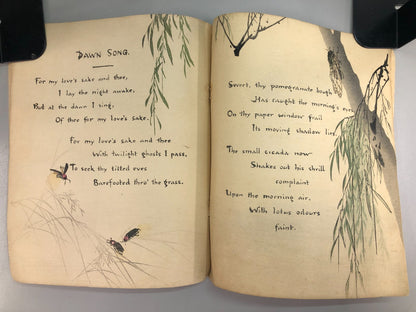 DAWN SONG.
For my love's sake and thee,
I lay the night awake,
But at the dawn I sing,
Of thee for my love's sake.
For my love's sake and thee
With twilight ghosts I pass,
To seek thy tilted eves
Barefooted thro' the grass.
Sweet, thy pomegranate bough
Has caught the morning's
On thy paper window frail
Its moving shadow lies
The small cicada now
Shakes out his shrill
complaint
Upon the morning air,
With lotus odours
faint.